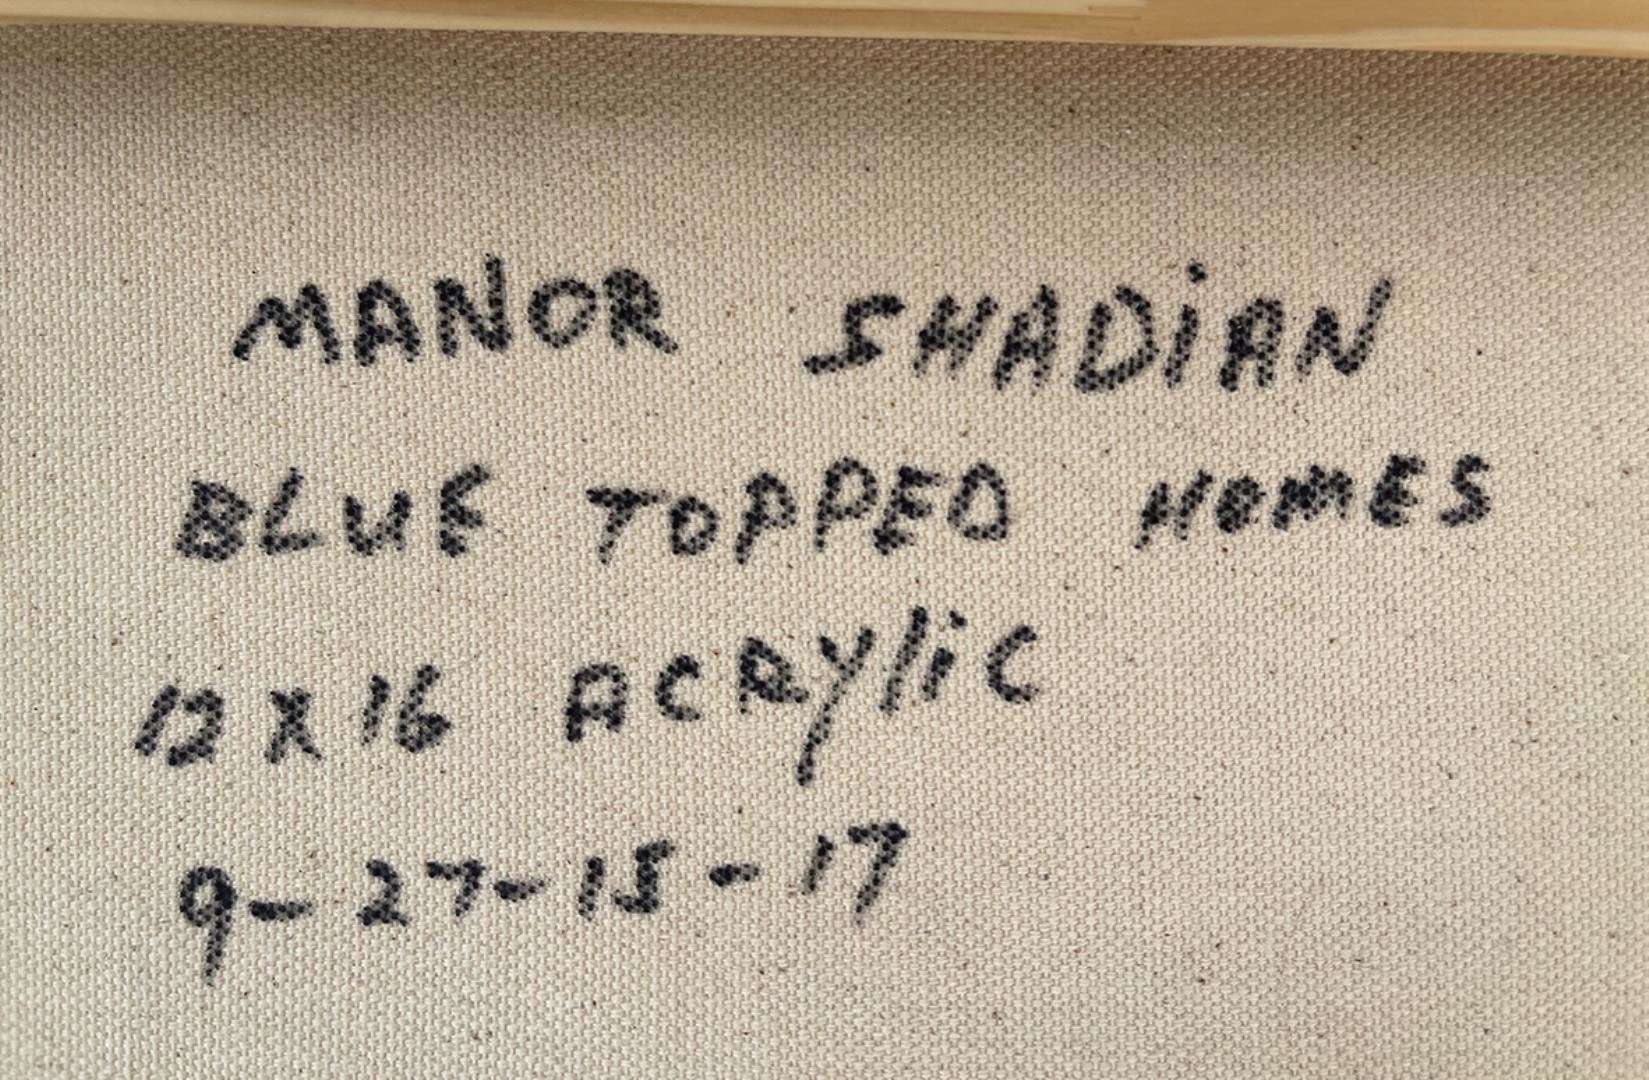 MANOR SHADiAN
BLUE TOPPED HOMES
12 X 16 ACRYliC
9-27-15-17